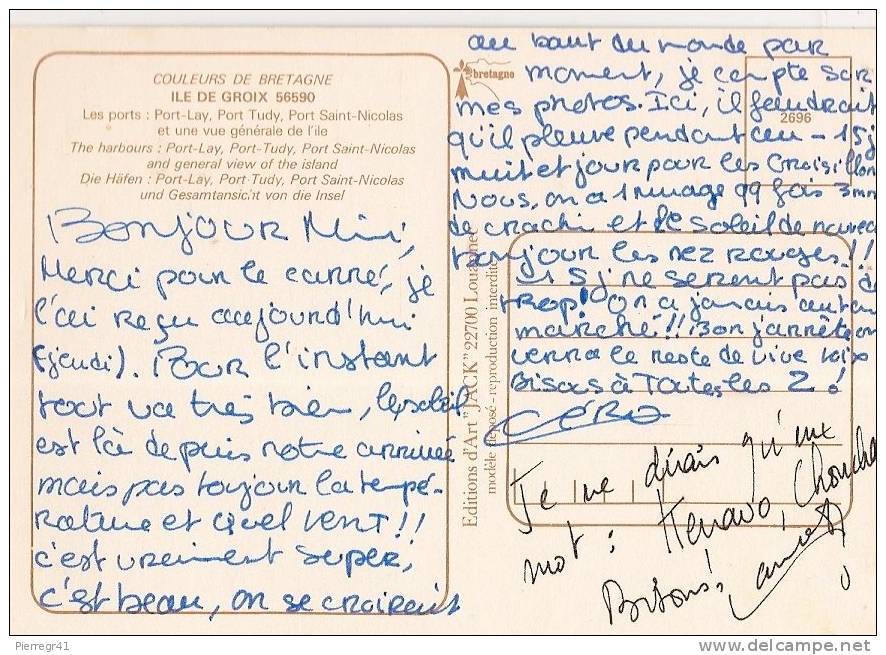 COULEURS DE BRETAGNE
ILE DE GROIX 56590
Les ports : Port-Lay, Port Tudy, Port Saint-Nicolas
et une vue générale de l'ile
The harbours : Port-Lay, Port-Tudy, Port Saint-Nicolas
and general view of the island
Die Häfen : Port-Lay, Port-Tudy, Port Saint-Nicolas
und Gesamtansicht von die Insel
BONJOUR Mini,
Merci pour le carré, je
l'ai reçu aujourd'hui
(jeudi). Pour l'instant
tout va très bien, le soleil
est là depuis notre arrivée
mais pas toujour la tempé-
rature et quel VENT!!
c'est vraiment super,
c'est beau, on se croirait
au bout du monde par
moment, je compte sur
mes photos. Ici, il faudrait
qu'il pleuve pendant au - 15j
nuit et jour pour les Groisillons
Nous, on a 1 nuage qq fois 3mm
de crachi et le soleil de nouveau
bonjour les nez rouges!!
15j ne seront pas de
trop! On a jamais autant
marché!! Bon j'arrête on
verra le reste de vive voix
Bisous à toutes les 2!
CÉRO
Je ne dirais qu'un
mot : Kenavo,
Bisous!
bretagne
2696
Editions d'Art "JACK" 22700 Louannec
modèle déposé - reproduction interdite
Pierregr41
www.delcampe.net